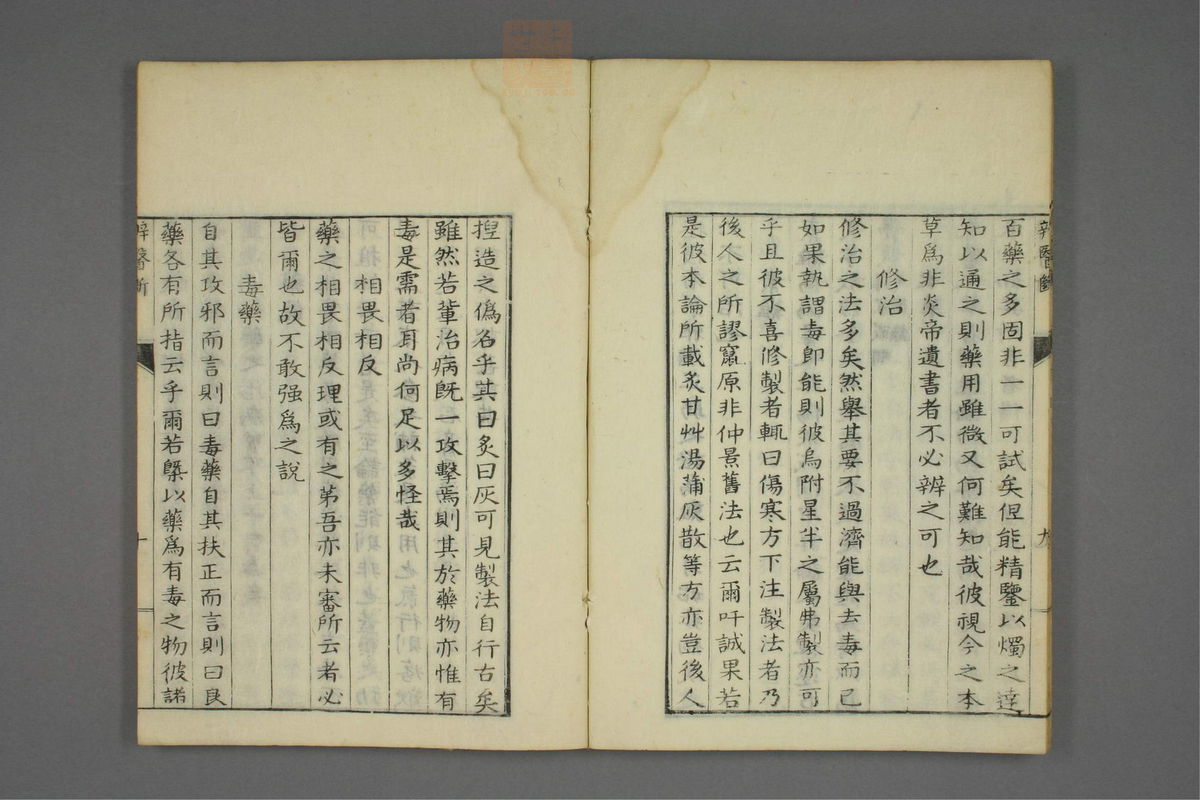 百藥之多固非一一可試矣但能精鑒以燭之達
知以通之則藥用雖微又何難知哉彼視今之本
草爲非炎帝遺書者不必辨之可也
修治
修治之法多矣然舉其要不過濟能與去毒而已
如果執謂毒即能則彼烏附星半之屬弗製亦可
乎且彼不喜修製者輒曰傷寒方下注製法者乃
後人之所謬竄原非仲景舊法也云爾吁誠果若
是彼本論所載炙甘艸湯蒲灰散等方亦豈後人
九
捏造之僞名乎其曰炙曰灰可見製法自行古矣
雖然若輩治病既一攻擊焉則其於藥物亦惟有
毒是需者耳尚何足以多怪哉
相畏相反
藥之相畏相反理或有之第吾亦未審所云者必
皆爾也故不敢强爲之說
毒藥
自其攻邪而言則曰毒藥自其扶正而言則曰良
藥各有所指云乎爾若槩以藥爲有毒之物彼諸
辨醫斷
十